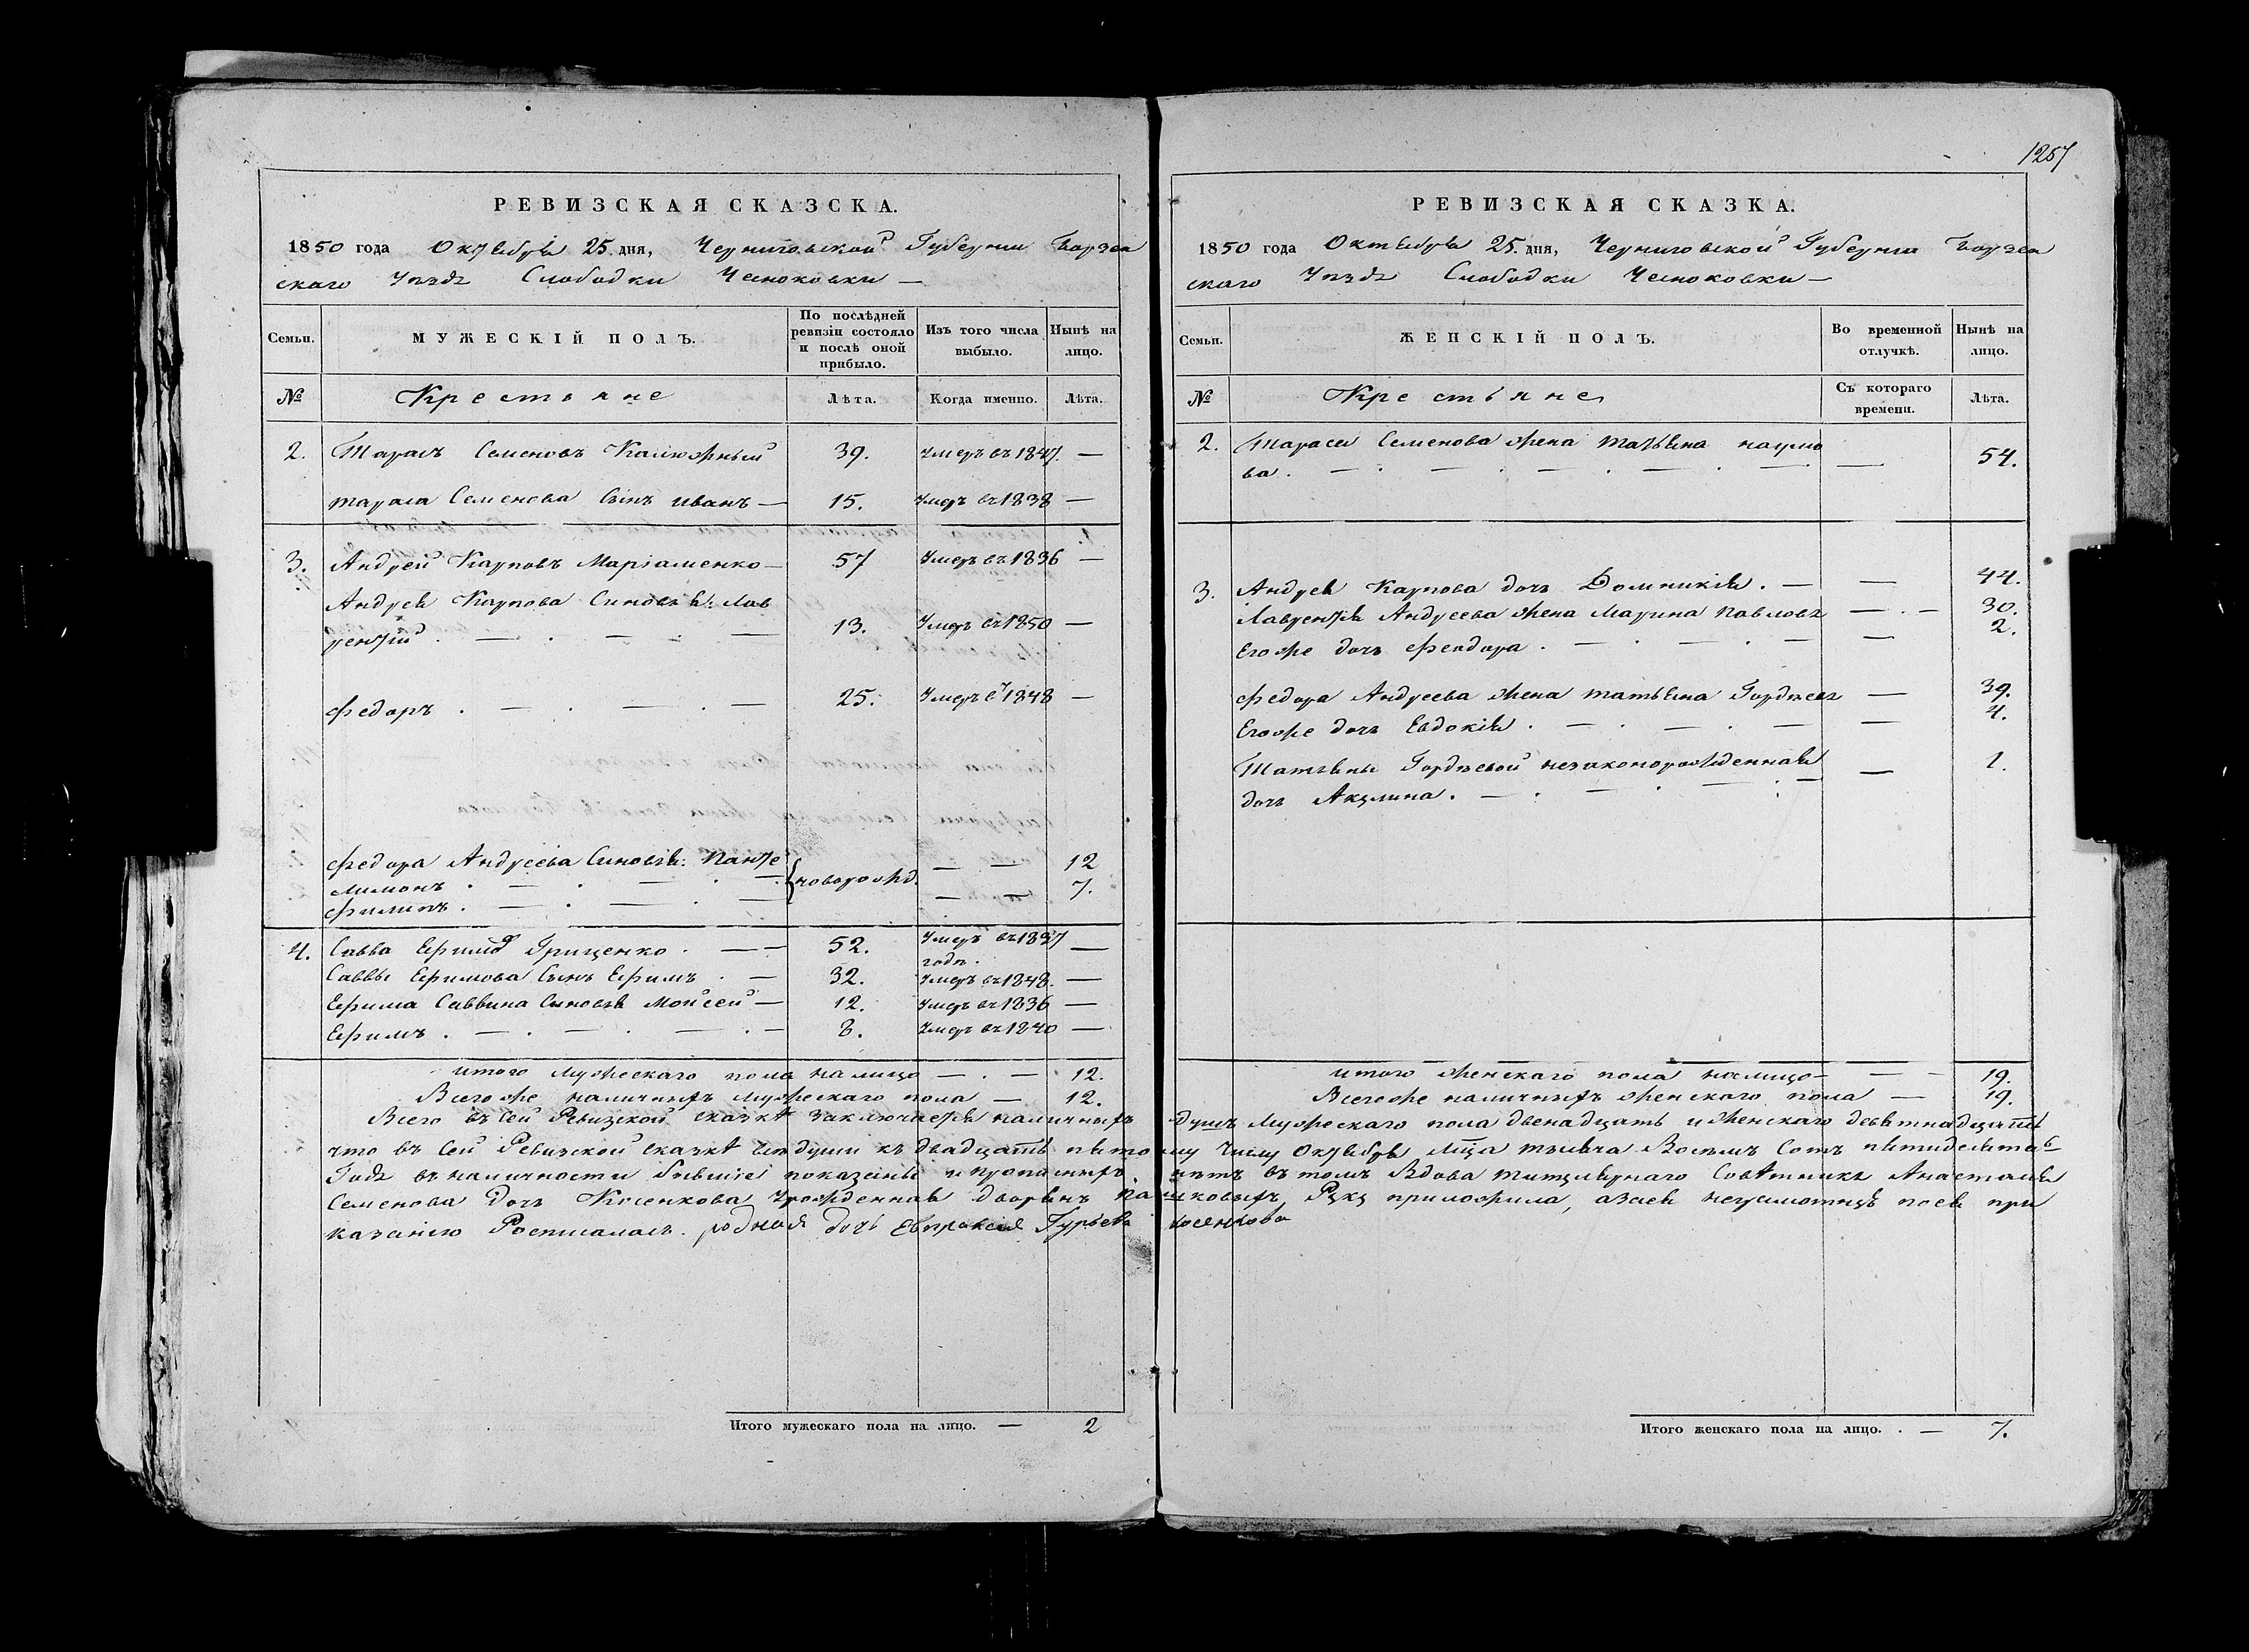 РЕВИЗСКАЯ СКАЗСКА.
1850 года Октября 25. дня, Черниговской Губернии Борзен
скаго Уезда Слободки Чесноковки —
Семьи.
МУЖЕСКІЙ ПОЛЪ.
По послѣдней
ревизіи состояло
и послѣ оной
прибыло.
Изъ того числа
выбыло.
Нынѣ на
лицо.
№
Крестьяне
Лѣта.
Когда именно.
Лѣта.
2. Тарасъ Семеновъ Калюжный 39. умеръ въ 1847. —
Тараса Семенова Сынъ Иванъ — 15. умеръ въ 1838 —
3. Андрей Карповъ Маріаменко — 57 Умеръ въ 1836 —
Андрея Карпова Синовья: Лав
рентій . — . — . — 13. Умеръ въ 1850 —
Федоръ . — . — . — 25. Умеръ въ 1848 —
Федора Андреева Синовья: Панте
лимонъ . — . — . — новорожд. — — 12
Филипъ . — . — . — — — 7.
4. Савва Ефимов Грищенко . — — 52. Умеръ въ 1837 —
годѣ.
Саввы Ефимова Сынъ Ефимъ . — 32. Умеръ въ 1848. —
Ефима Саввина Сыновья Мойсей — 12. Умеръ въ 1836 —
Ефимъ . — . — . — . — 8. Умеръ въ 1840 —
итого мужескаго пола налицо — . — 12.
Всегоже наличныхъ мужескаго пола — 12.
РЕВИЗСКАЯ СКАЗКА.
1257
1850 года Октября 25. дня, Черниговской Губерніи Борзен
скаго Уезда Слободки Чесноковки —
Семьи.
ЖЕНСКІЙ ПОЛЪ.
Во временной
отлучкѣ.
Нынѣ на
лицо.
№
Крестьяне
Съ котораго
времени.
Лѣта.
2. Тараса Семенова жена Татьяна наумо
ва . — . — . — . — . — . — — 54.
3. Андрея Карпова дочь Домникія . — — 44.
Лаврентія Андреева жена Марина Павловa — . — 30.
Егоже дочь Феодора . — . — . — — 2.
Федора Андреева жена татьяна Гордѣева — 39.
Егоже дочь Евдокія . — . — . — — 4.
Татьяны Гордѣевой незаконорожденная
дочь Акулина . — . — . — — — 1.
итого женскаго пола налицо — — — 19.
Всегоже наличныхъ женскаго пола — 19.
Всего въ сей Ревизской сказкѣ заключается наличныхъ душъ мужескаго пола двенадцать и женскаго девятнадцать
что въ сей Ревизской сказкѣ всѣ души къ двадцать пятому числу Октября мца тысяча Восемь Сотъ пятидесятаго
Года въ наличности бывшіе показаны и пропаныхъ нѣтъ въ томъ Вдова титулярнаго Совѣтника Анастасія
Семенова Дочь Косенкова урожденная дворянъ Пашковыхъ Руку приложила, а за ея неграмотнѣ по ея при
казанію Росписалась. родная дочь Евпраксия Гурьева Косенкова
Итого мужескаго пола на лицо. — 2
Итого женскаго пола на лицо. . — 7.